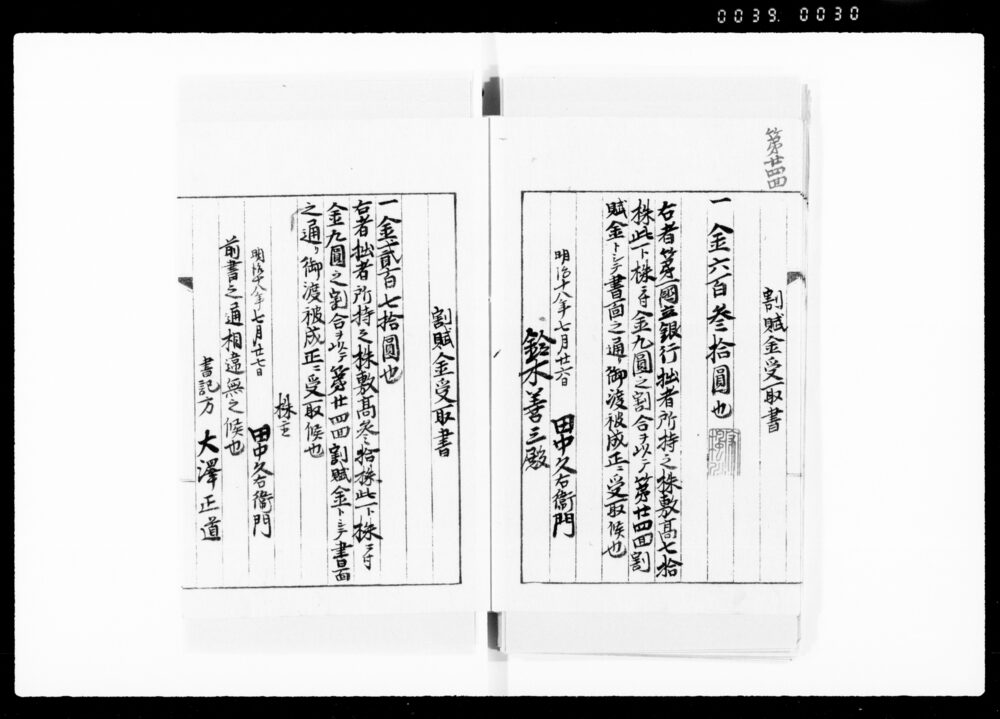 0039. 0030
第廿四回
割賦金受取書
一金六百叄拾圓也
右者第一國立銀行拙者所持之株敷高七拾
株此一ト株ニ付金九圓之割合ヲ以テ第廿四回割
賦金トシテ書面之通リ御渡被成正ニ受取候也
明治十八年七月廿六日
田中久右衛門
鈴木善三殿
割賦金受取書
一金貳百七拾圓也
右者拙者所持之株敷高叄拾株此一ト株ニ付
金九圓之割合ヲ以テ第廿四回割賦金トシテ書面
之通リ御渡被成正ニ受取候也
株主
明治十八年七月廿七日
田中久右衛門
前書之通相違無之候也
書記方 大澤正道